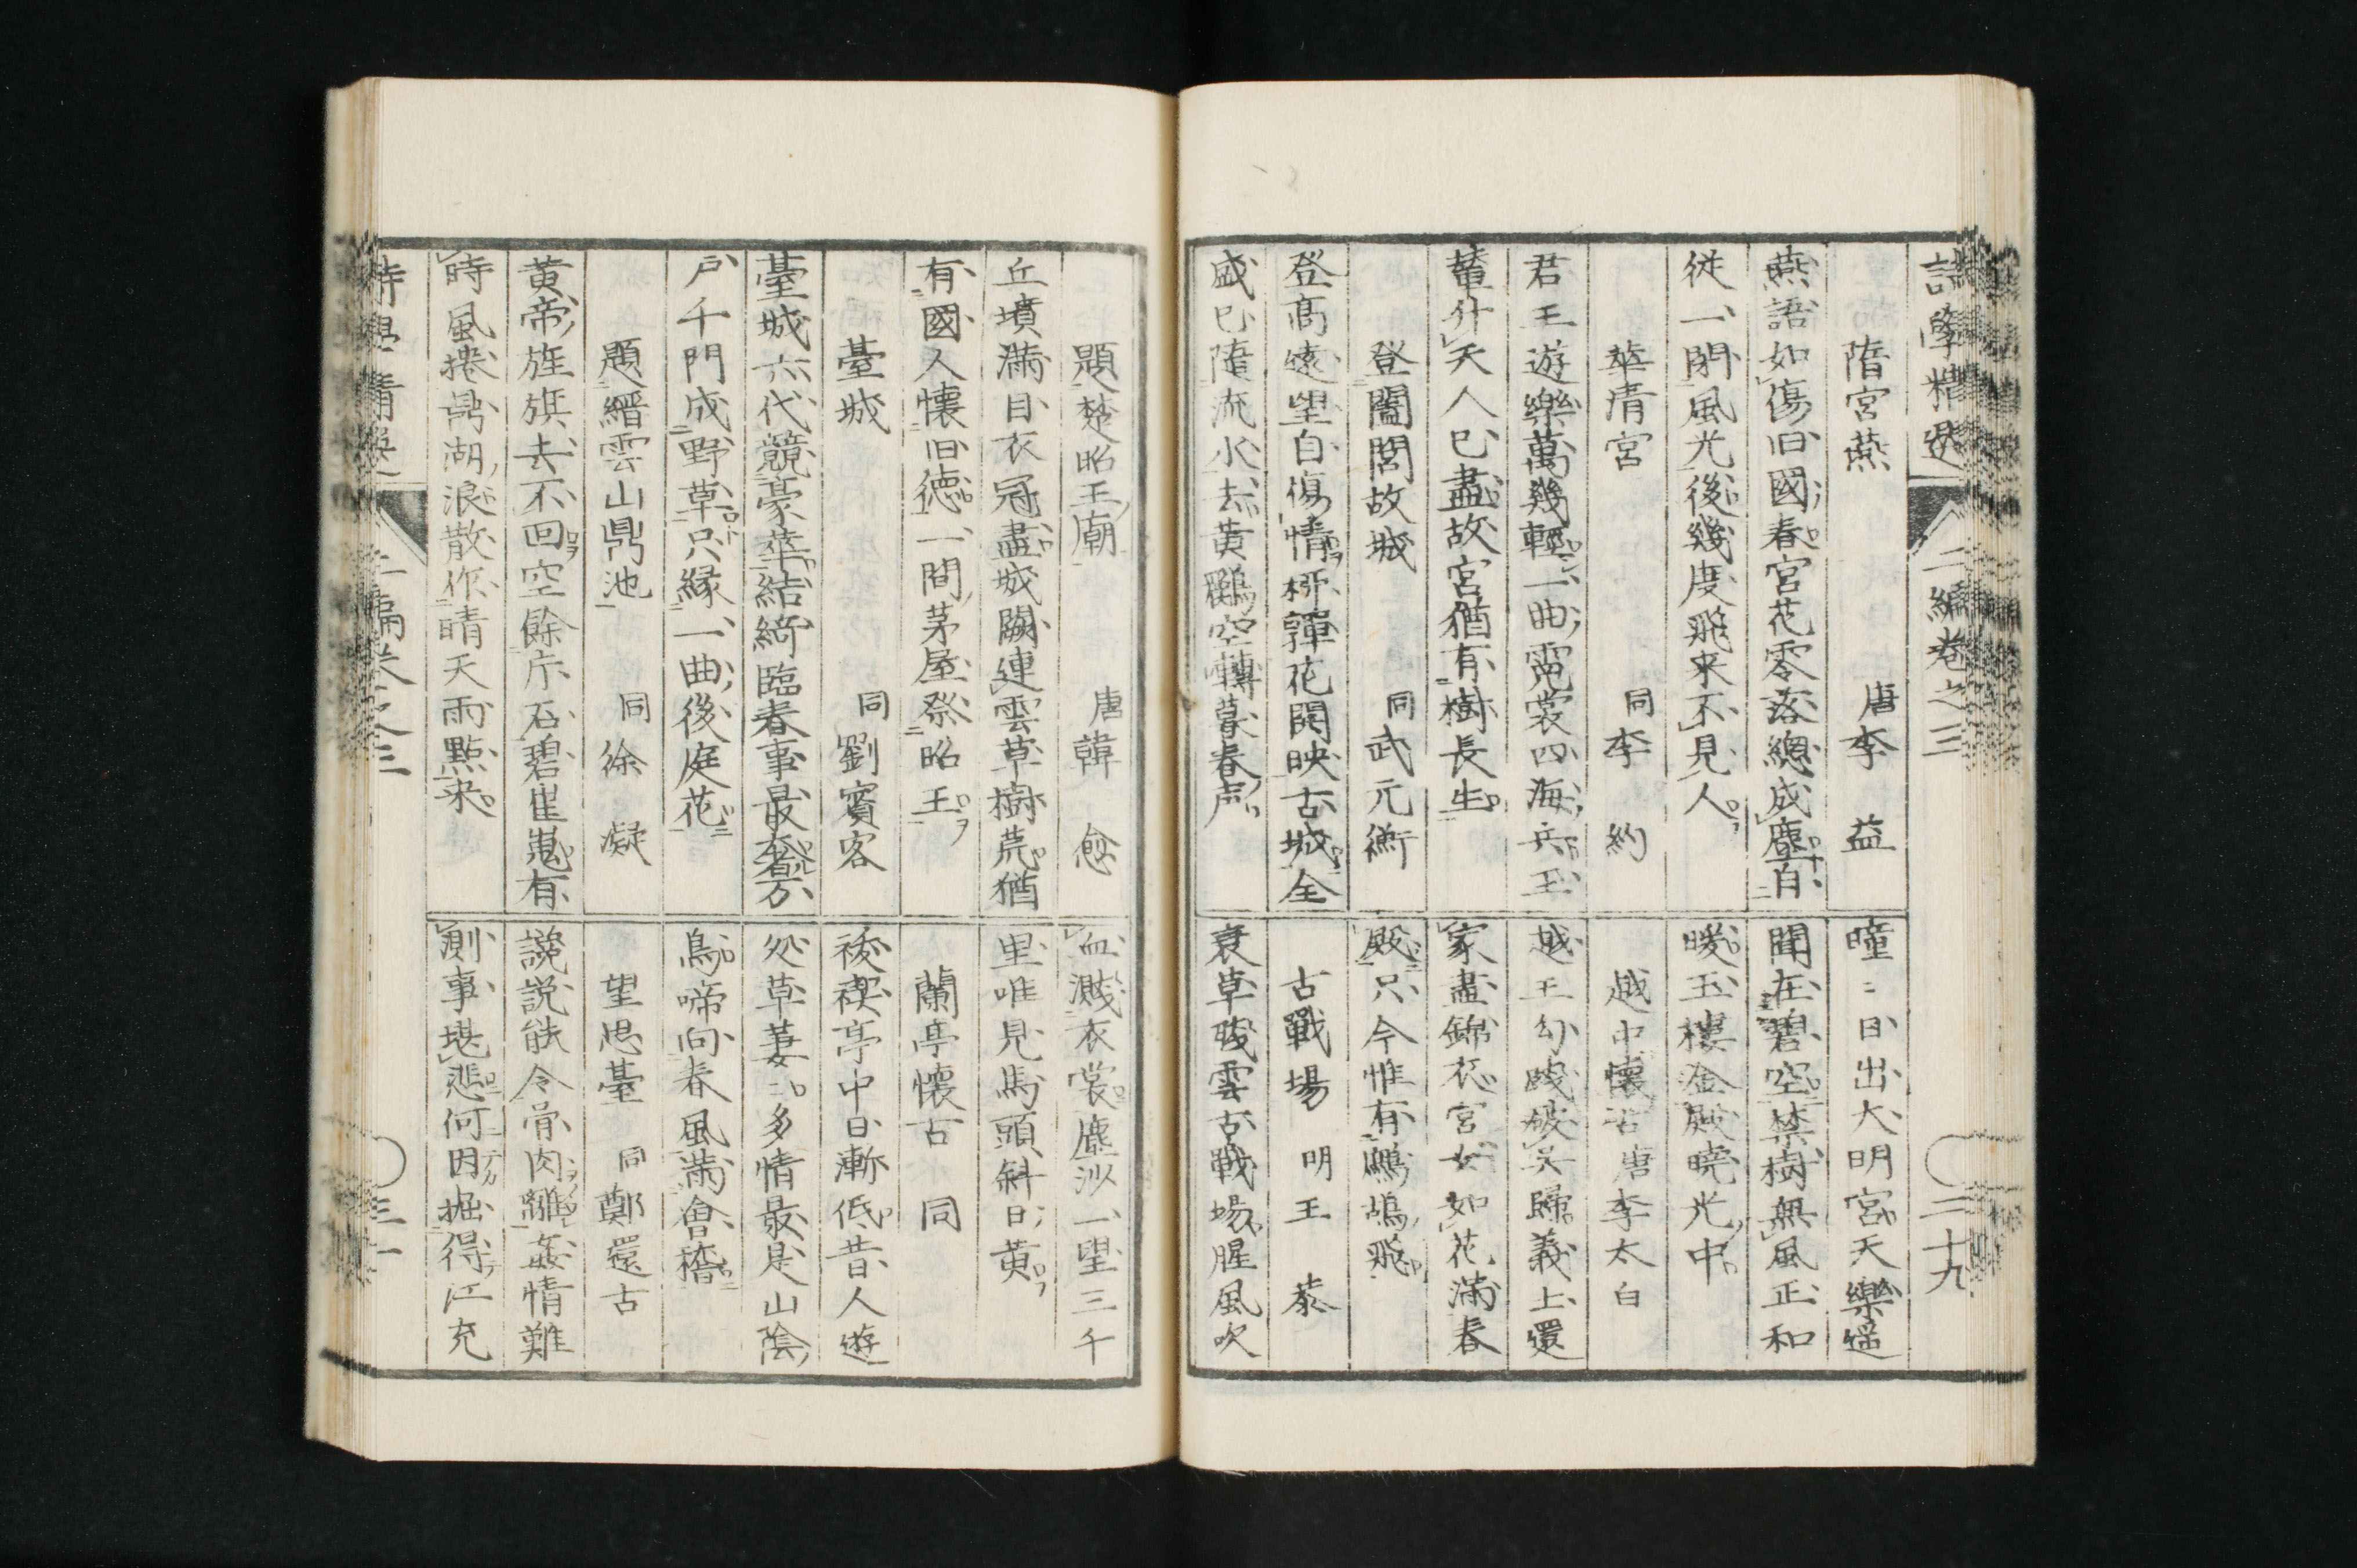 詩學精選 二編卷之三 二十九
隋宮燕 唐李益
燕語如傷旧國春宮花零落總成塵自
従一閉風光後幾度飛来不見人
華清宮 同李約
君王遊樂萬幾輕一曲霓裳四海兵玉
輦升天人已盡故宮猶有樹長生
登闔閭故城 同武元衡
登高遠望自傷情柳嚲花開映古城全
盛已隨流水去黄鸝空囀暮春声
曈〻日出大明宮天樂遥
聞在碧空禁樹無風正和
暖玉樓金殿曉光中
越中懐古 唐李太白
越王勾踐破吴歸義士還
家盡錦衣宮女如花滿春
殿只今惟有鷓鴣飛
古戰場 明王恭
衰草殘雲古戰場腥風吹
題楚昭王廟 唐韓愈
丘墳滿目衣冠盡城闕連雲草樹荒猶
有國人懷旧德一間茅屋祭昭王
臺城 同劉賓客
臺城六代競豪華結綺臨春事最奢万
戸千門成野草只縁一曲後庭花
題縉雲山鼎池 同徐凝
黄帝旌旗去不回空餘片石碧崔嵬有
時風捲鼎湖浪散作晴天雨點来
血濺衣裳塵沙一望三千
里唯見馬頭斜日黄
蘭亭懐古 同
祓禊亭中日漸低昔人遊
処草萋〻多情最是山陰
鳥啼向春風満會稽
望思臺 同鄭還古
讒説能令骨肉離姦情難
測事堪悲何因掘得江充
詩學精選 二編卷之三